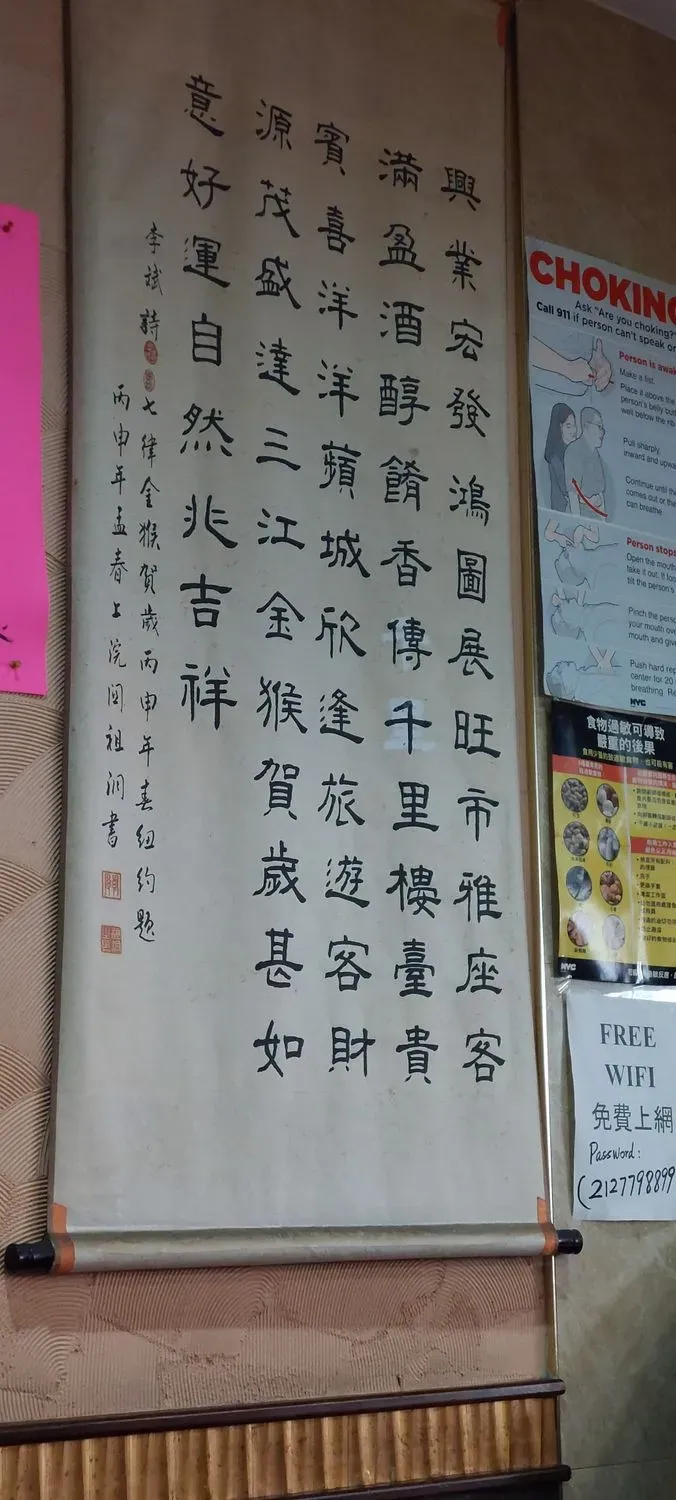 興業宏發鴻圖展旺市雅座客
滿盈酒醇餚香傳千里樓臺貴
賓喜洋洋蘋城欣逢旅遊客財
源茂盛達三江金猴賀歲甚如
意好運自然兆吉祥
李斌詩
七律金猴賀歲丙申年春紐約題
丙申年孟春上浣周祖泂書
CHOKING
Ask "Are you choking?"
Call 911 if person can't speak or
Person is awak
Make a fist.
Place it above the
person's belly but
well below the rib
Pull sharply,
inward and upwa
Continue until the
comes out or the
can breathe
Person stops
Open the mouth
take it out. If loo
tilt the person's
Pinch the perso
your mouth ove
mouth and give
Push hard rep
center for 20
breathing. Re
NYC
食物過敏可導致
嚴重的後果
NYC
FREE
WIFI
免費上網
Password:
(2127798899